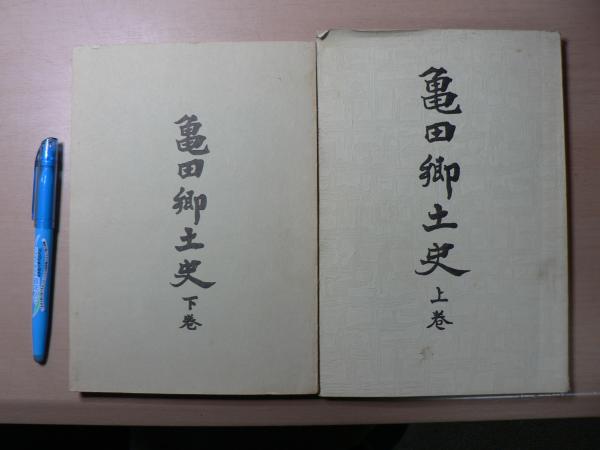 亀田郷土史
上巻
亀田郷土史
下巻